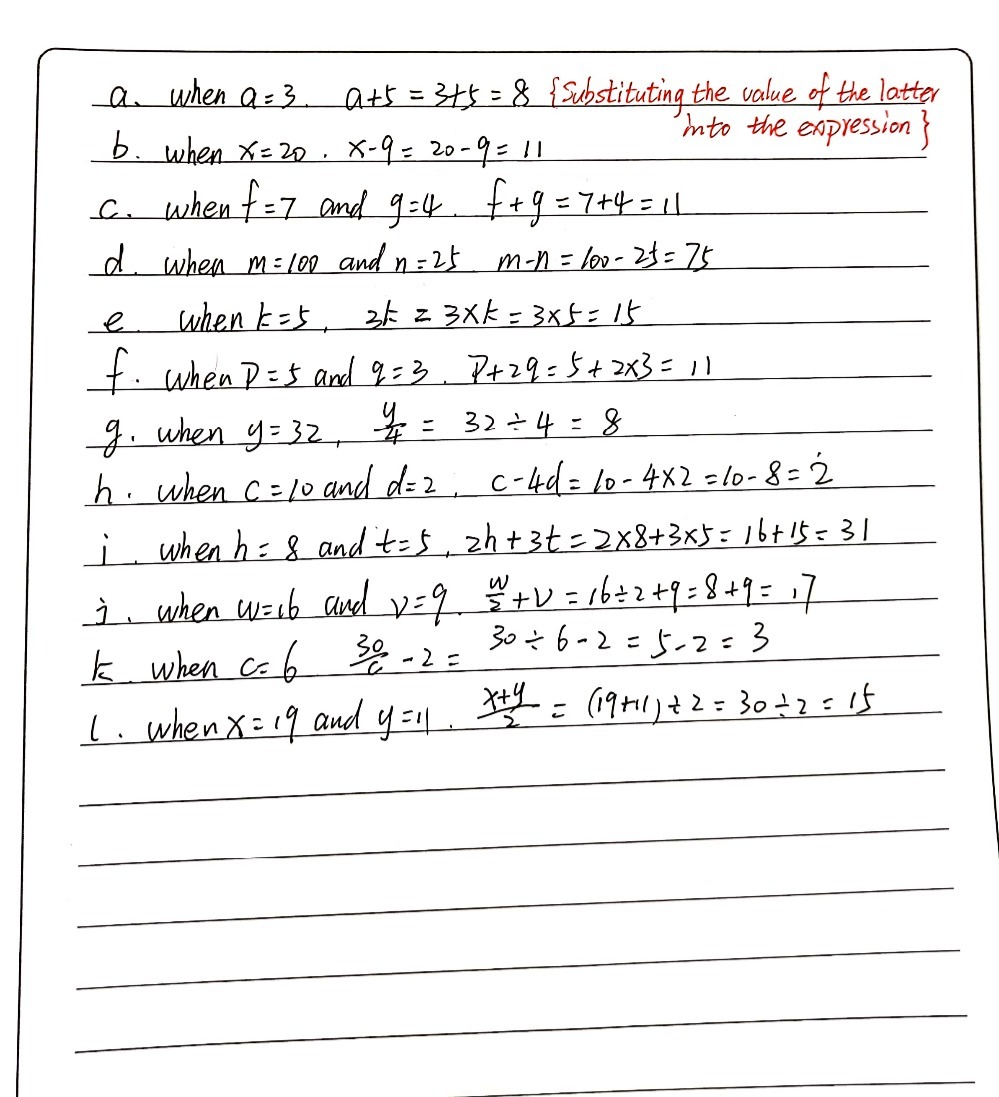 a. when a=3. a+5 = 3+5 = 8 {Substituting the value of the latter
into the expression}
b. when x=20. x-9= 20-9= 11
c. when f=7 and g=4. f+g = 7+4= 11
d. when m=100 and n=25 m-n = 100-25= 75
e. when k=5, 3k = 3×k = 3×5= 15
f. when P=5 and q=3. P+2q= 5+2×3= 11
g. when y=32, y/4 = 32÷4 = 8
h. when c=10 and d=2, c-4d= 10-4×2 =10-8= 2
i. when h= 8 and t=5, 2h+3t=2×8+3×5= 16+15= 31
j. when w=16 and v=9. w/2+v =16÷2+9=8+9= 17
k. when c=6 30/c -2= 30÷6-2 = 5-2= 3
l. when x=19 and y=11. x+y/2 = (19+11)÷2= 30÷2= 15